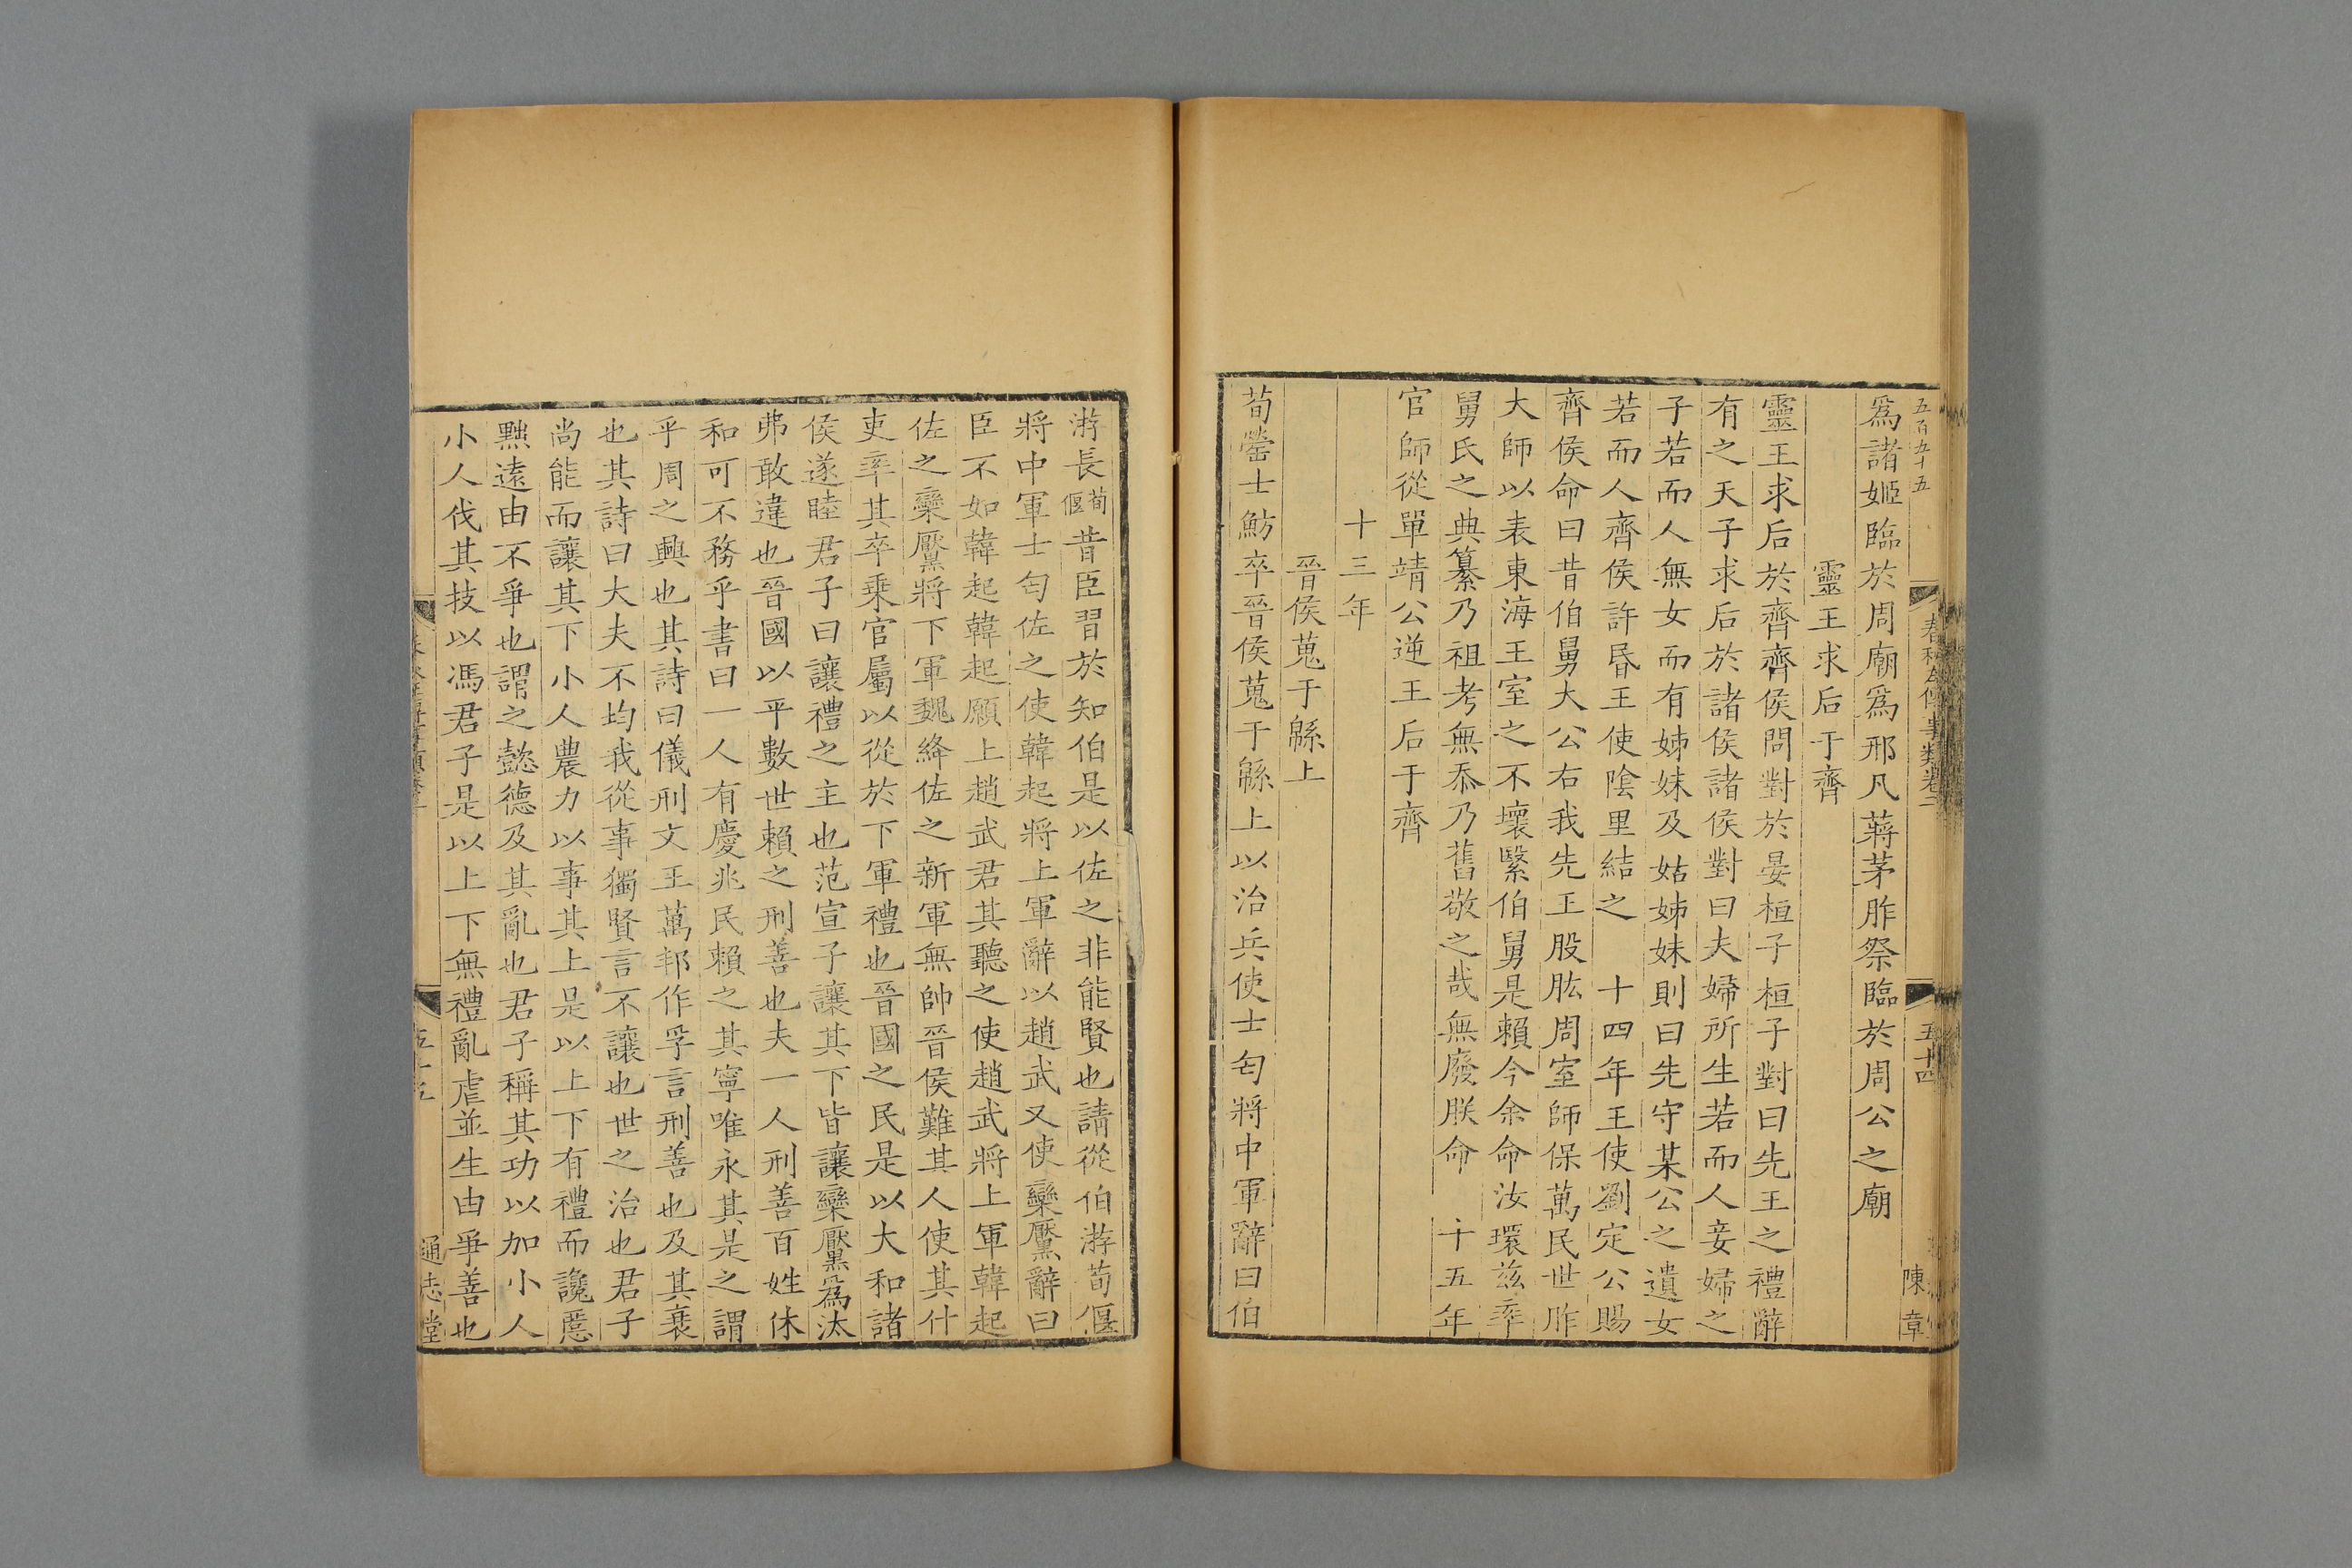 五百九十五
春秋左傳事類卷二
五十四
陳章
爲諸姬臨於周廟爲邢凡蔣茅胙祭臨於周公之廟
靈王求后于齊
靈王求后於齊齊侯問對於晏桓子桓子對曰先王之禮辭
有之天子求后於諸侯諸侯對曰夫婦所生若而人妾婦之
子若而人無女而有姊妹及姑姊妹則曰先守某公之遺女
若而人齊侯許昏王使陰里結之 十四年王使劉定公賜
齊侯命曰昔伯舅大公右我先王股肱周室師保萬民世胙
大師以表東海王室之不壞繄伯舅是賴今余命汝環茲率
舅氏之典纂乃祖考無忝乃舊敬之哉無廢朕命 十五年
官師從單靖公逆王后于齊
十三年
晉侯蒐于緜上
荀罃士魴卒晉侯蒐于緜上以治兵使士匄將中軍辭曰伯
游長荀偃昔臣習於知伯是以佐之非能賢也請從伯游荀偃
將中軍士匄佐之使韓起將上軍辭以趙武又使欒黶辭曰
臣不如韓起韓起願上趙武君其聽之使趙武將上軍韓起
佐之欒黶將下軍魏絳佐之新軍無帥晉侯難其人使其什
吏率其卒乘官屬以從於下軍禮也晉國之民是以大和諸
侯遂睦君子曰讓禮之主也范宣子讓其下皆讓欒黶爲汰
弗敢違也晉國以平數世賴之刑善也夫一人刑善百姓休
和可不務乎書曰一人有慶兆民賴之其寧唯永其是之謂
乎周之興也其詩曰儀刑文王萬邦作孚言刑善也及其衰
也其詩曰大夫不均我從事獨賢言不讓也世之治也君子
尚能而讓其下小人農力以事其上是以上下有禮而讒慝
黜遠由不爭也謂之懿德及其亂也君子稱其功以加小人
小人伐其技以馮君子是以上下無禮亂虐並生由爭善也
五十五
通志堂